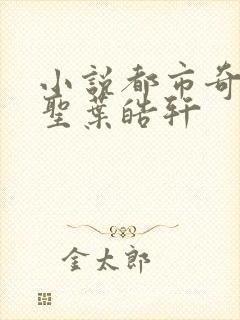 小説都市奇
聖葉皓軒
金太郎